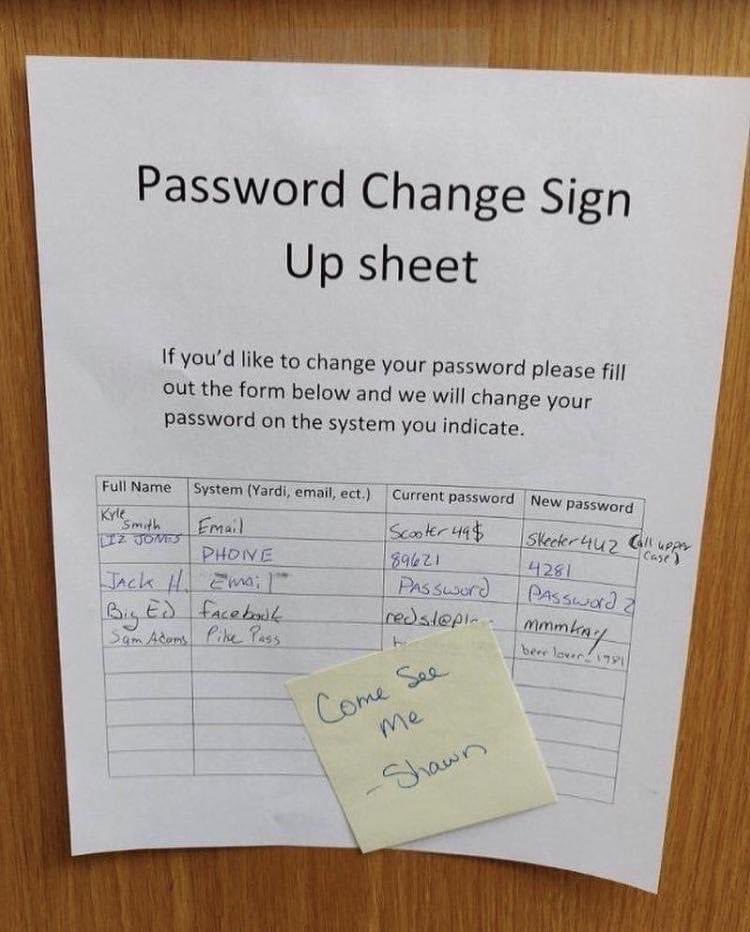 Password Change Sign
Up sheet
If you'd like to change your password please fill
out the form below and we will change your
password on the system you indicate.
Full Name System (Yardi, email, ect.) Current password New password
Kyle Smith Email Scooter 49$ Skeeter 4U2 (all upper case)
LIZ JONES PHONE 89621 4281
Jack H. Email PASSword PASSword 2
Big Ed facebook mmmkay
Sam Adams Pike Pass beer lover 1981
Come See
Me
- Shawn